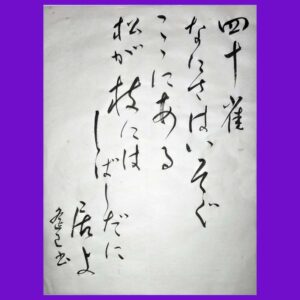 四十雀
なにさはいそぐ
ここにある
松が枝には
しばしだに
居よ